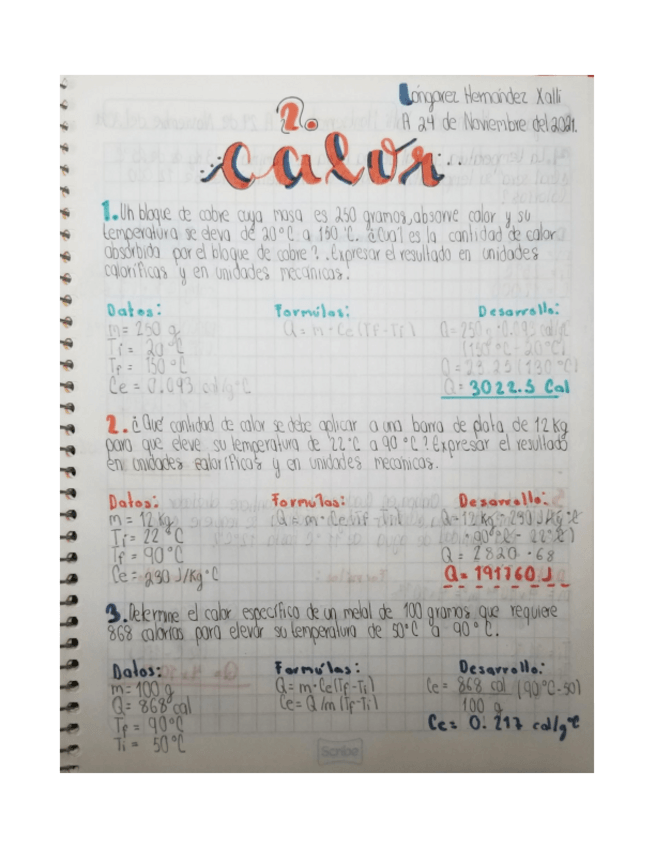 Longarez Hernandez Xalli
A 24 de Noviembre del 2021.
2.
calor
1. Un bloque de cobre cuya masa es 250 gramos, absorve calor y su
temperatura se eleva de 20°C a 150°C. ¿Cual es la cantidad de calor
absorbida por el bloque de cobre?. Expresar el resultado en unidades
calorificas y en unidades mecánicas.
Datos: Formulas: Desarrollo:
m= 250 g Q = m·Ce(Tf-Ti) Q= 250 g ·0.093 cal/g°C
Ti = 20 °C (150°C - 20°C)
Tf = 150 °C Q= 23.25 (130°C)
Ce = 0.093 cal/g°C Q= 3022.5 Cal
2. ¿Qué cantidad de calor se debe aplicar a una barra de plata de 12 kg
para que eleve su temperatura de 22°C a 90°C? Expresar el resultado
en unidades calorificas y en unidades mecanicas.
Datos: Formulas: Desarrollo:
m = 12 kg Q= m·Ce(Tf-Ti) Q= 12 kg · 230 J/Kg °C
Ti = 22°C (90°C - 22°C)
Tf = 90°C Q = 2820 · 68
Ce= 230 J/Kg·°C Q= 191760 J
3. Determine el calor especifico de un metal de 100 gramos que requiere
868 calorias para elevar su temperatura de 50°C a 90°C.
Datos: Formulas: Desarrollo:
m= 100 g Q= m·Ce(Tf-Ti) Ce = 868 cal (90°C-50)
Q= 868 cal Ce= Q/m(Tf-Ti) 100 g
Tf = 90°C Ce= 0.217 cal/g°C
Ti = 50°C
Scribe